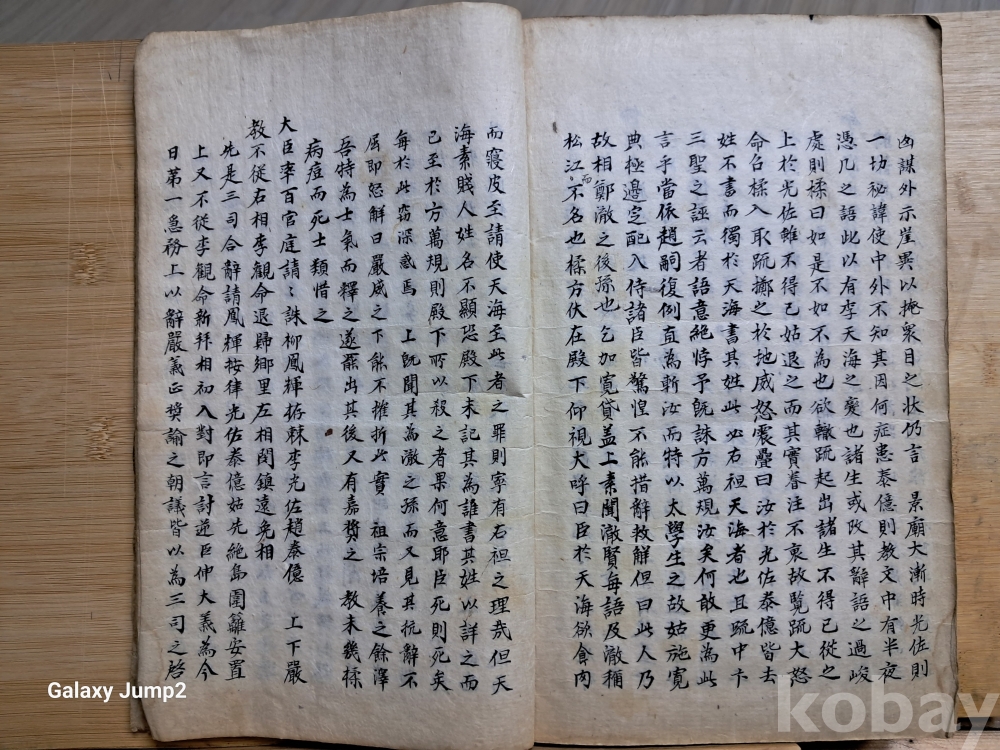 凶謀外示崖異以掩衆目之狀仍言 景廟大漸時光佐則
一切秘諱使中外不知其因何症患泰億則教文中有半夜
憑几之語此以有李天海之變也諸生或改其辭語之過峻
處則楺曰如是不如不為也欲轍䟽起出諸生不得已從之
上於光佐雖不得已姑退之而其實眷注不衰故覽䟽大怒
命召楺入取䟽擲之於地威怒震疊曰汝於光佐泰億皆去
姓不書而獨於天海書其姓此必右袒天海者也且䟽中卞
三聖之誣云者語意絶悖予旣誅方萬規汝矣何敢更為此
言乎當依趙嗣復例直為斬汝而特以太學生之故姑施寛
典極邊定配入侍諸臣皆驚惶不能措辭救解但曰此人乃
故相鄭澈之後孫也乞加寛貸盖上素聞澈賢每語及澈稱
松江而不名也楺方伏在殿下仰視大呼曰臣於天海欲食肉
而寢皮至請使天海至此者之罪則寧有右袒之理哉但天
海素賤人姓名不顯恐殿下未記其為誰書其姓以詳之而
已至於方萬規則殿下所以殺之者果何意耶臣死則死矣
每於此竊深惑焉 上旣聞其為澈之孫而又見其抗辭不
屈即怒解曰嚴威之下能不摧折此實 祖宗培養之餘澤
吾特為士氣而釋之遂罷出其後又有嘉奬之 教未幾楺
病痘而死士類惜之
大臣率百官庭請〻誅柳鳳輝栫棘李光佐趙泰億 上下嚴
教不從右相李觀命退歸鄉里左相閔鎮遠免相
先是三司合辭請鳳輝按律光佐泰億姑先絶島圍籬安置
上又不從李觀命新拜相初入對即言討逆臣仲大義為今
日第一急務上以辭嚴義正奬諭之朝議皆以為三司之啓
Galaxy Jump2
kobay